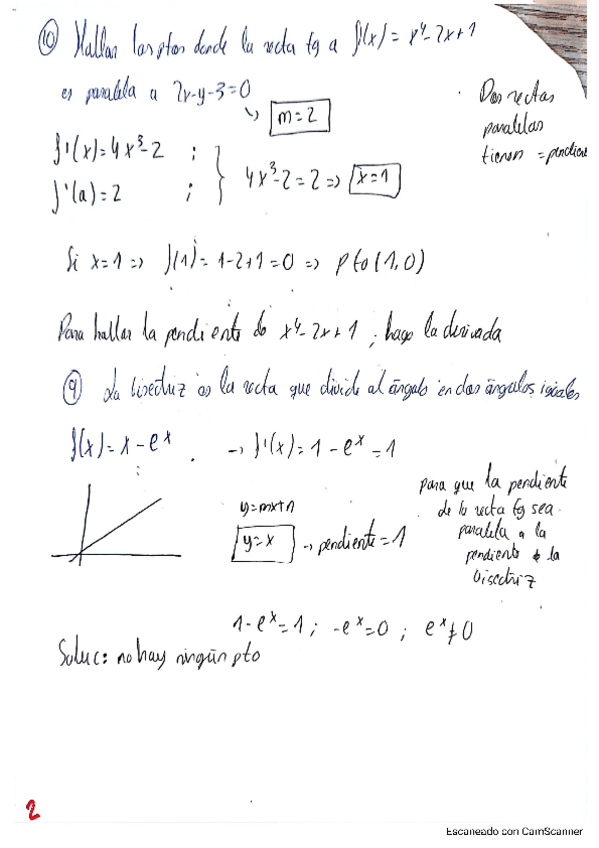 ⑩ Hallar los ptos donde la recta tg a f(x) = x⁴-2x+1
es paralela a 2x-y-3=0
↳ m=2
Dos rectas
paralelas
tienen = pendiente
f'(x)=4x³-2 ;
f'(a)=2 ;
} 4x³-2=2 => x=1
Si x=1 => f(1)= 1-2+1=0 => pto (1,0)
Para hallar la pendiente de x⁴-2x+1 ; hago la derivada
⑨ La bisectriz es la recta que divide al ángulo en dos ángulos iguales
f(x)=x-eˣ . → f'(x)=1-eˣ=1
para que la pendiente
de la recta tg sea
paralela a la
pendiente de la
bisectriz
y=mx+n
y=x → pendiente=1
1-eˣ=1 ; -eˣ=0 ; eˣ≠0
Soluc: no hay ningún pto
2
Escaneado con CamScanner